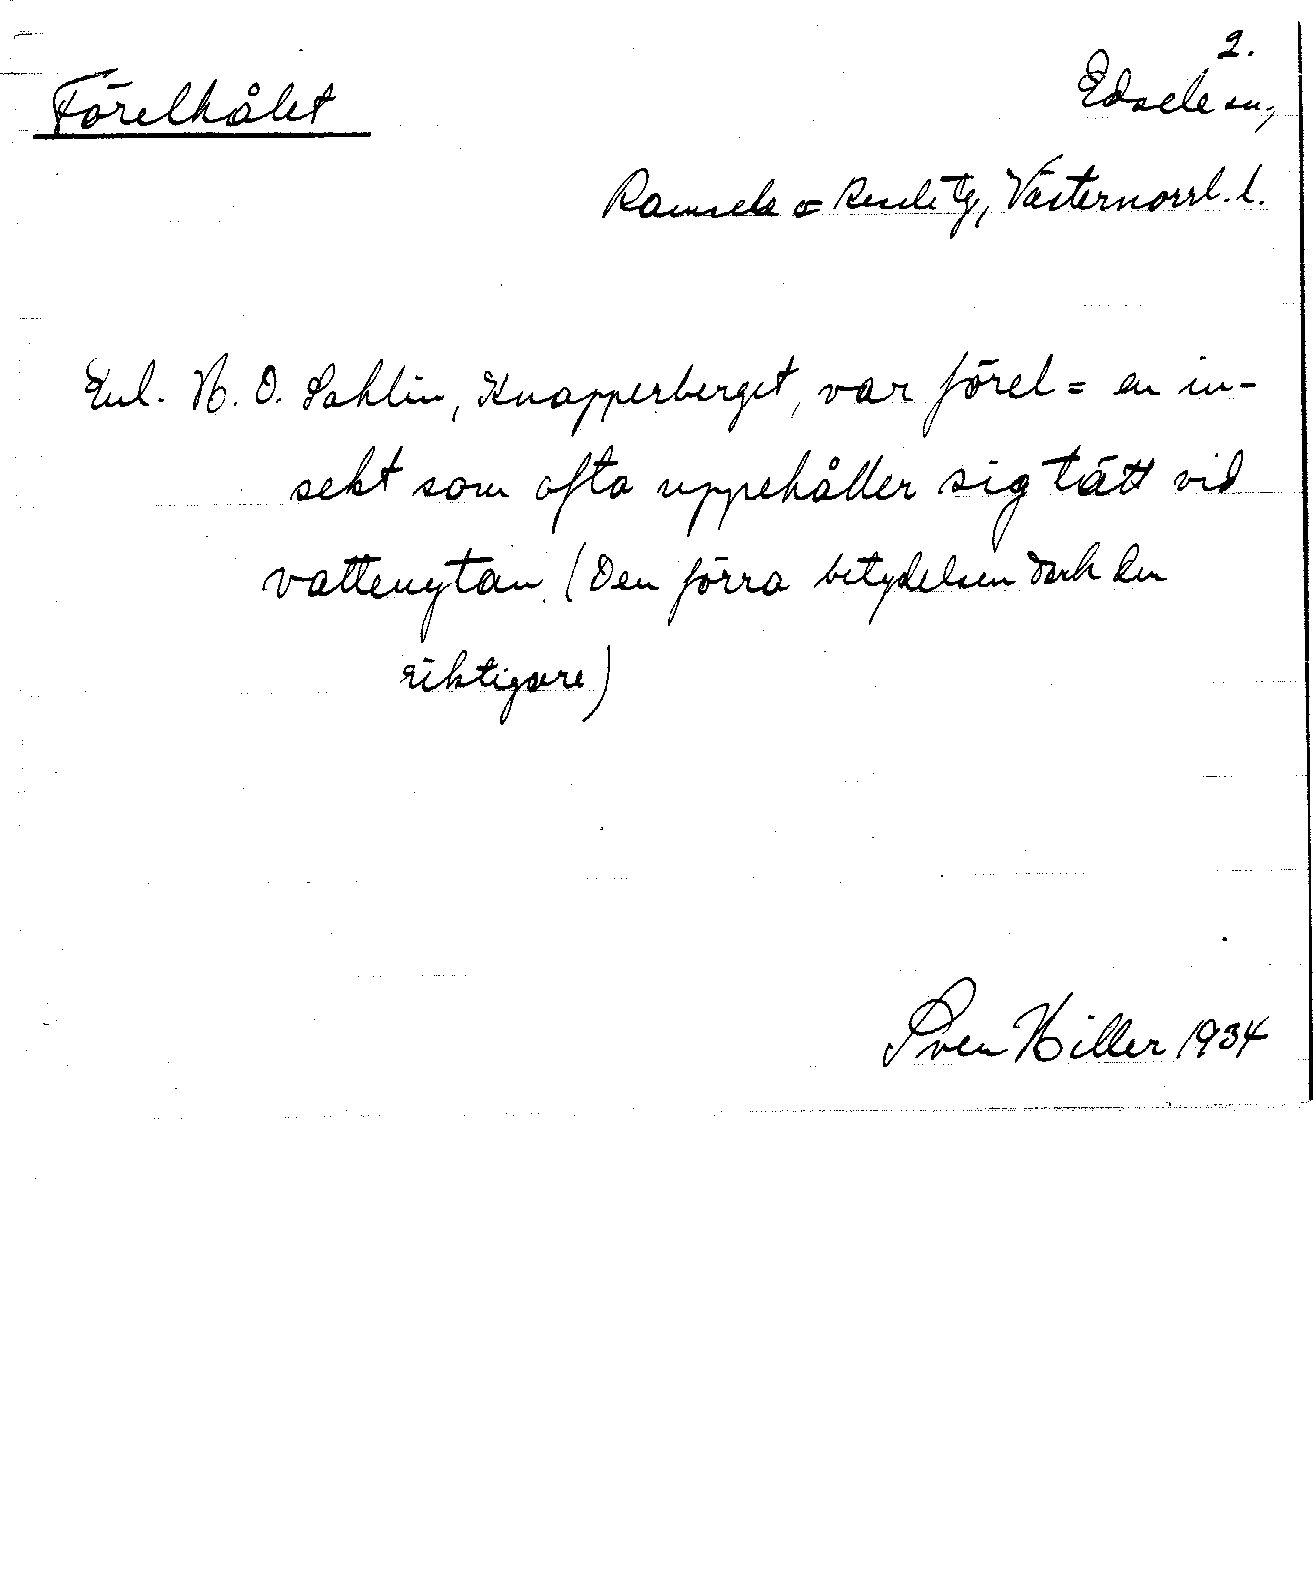 2.
Förelhålet
Edsele sn,
Ramsele o Resele tg, Västernorrl. l.
Enl. N. O. Sahlin, Knapperberget, var förel = en in-
sekt som ofta uppehåller sig tätt vid
vattenytan. (Den förra betydelsen dock den
riktigare)
Sven Hiller 1934